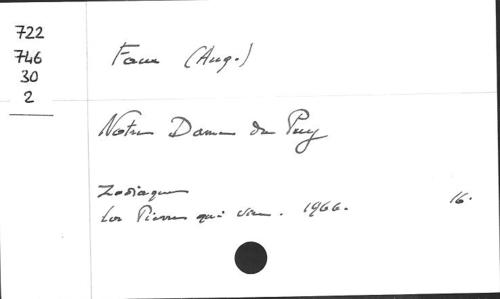 722
746
30
2
Faux (Aug.)
Notre Dame du Puy
Zodiaque
Les Pierres qui vivent. 1966. 16.